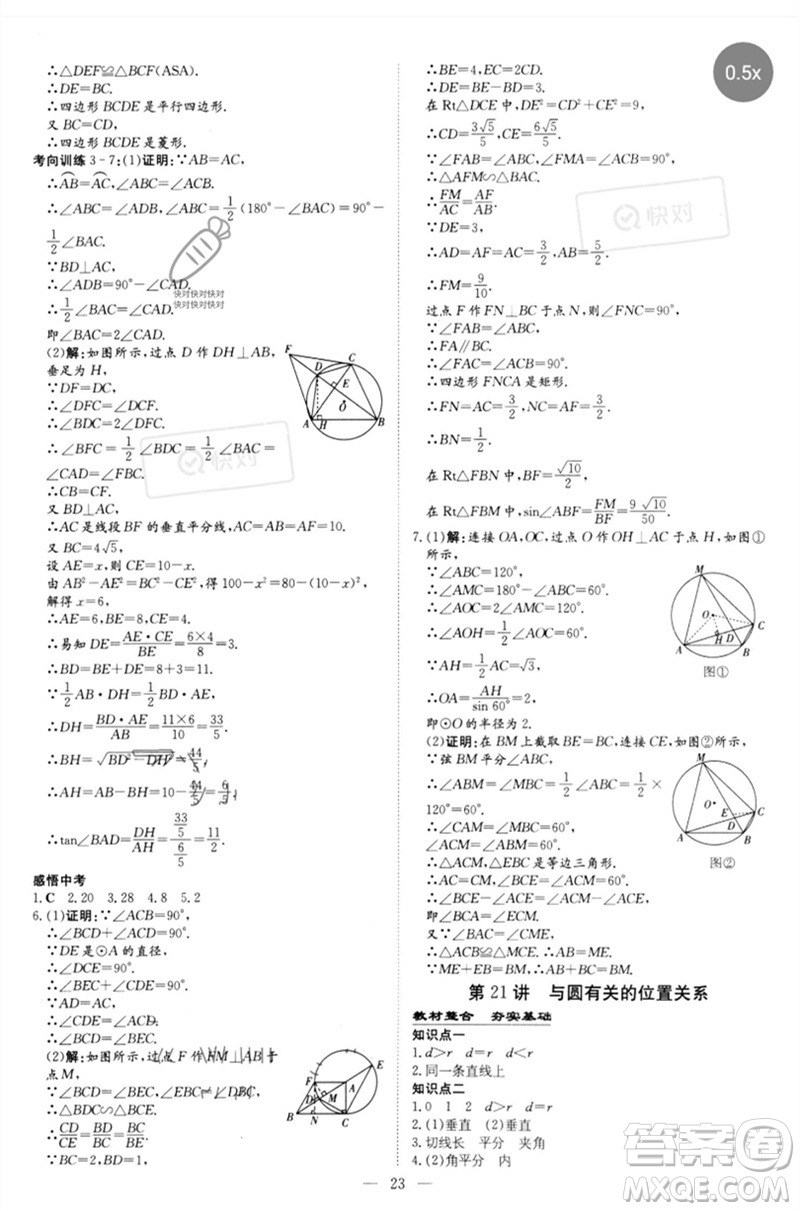 ∴△DEF≌△BCF(ASA).
∴DE=BC.
∴四边形 BCDE 是平行四边形.
又 BC=CD,
∴四边形 BCDE 是菱形.
考向训练 3-7:(1)证明:∵AB=AC,
∴AB=AC,∠ABC=∠ACB.
∴∠ABC=∠ADB,∠ABC=1/2(180°-∠BAC)=90°-
1/2∠BAC.
∵BD⊥AC,
∴∠ADB=90°-∠CAD.
∴1/2∠BAC=∠CAD.
即∠BAC=2∠CAD.
(2)解:如图所示,过点 D 作 DH⊥AB,
垂足为 H,
∵DF=DC,
∴∠DFC=∠DCF.
∴∠BDC=2∠DFC.
∴∠BFC=1/2∠BDC=1/2∠BAC=
∠CAD=∠FBC.
∴CB=CF.
又 BD⊥AC,
∴AC 是线段 BF 的垂直平分线,AB=AF=10.
又 BC=4√5,
设 AE=x,CE=10-x,
由 AB²-AE²=BC²-CE²,得 100-x²=80-(10-x)²,
解得 x=6,
∴AE=6,BE=8,CE=4.
∴易知 DE=AE·CE/BE=6×4/8=3.
∴BD=BE+DE=8+3=11.
∵1/2AB·DH=1/2BD·AE,
∴DH=BD·AE/AB=11×6/10=33/5.
∴BH=√(BD²-DH²)=44/5,
∴AH=AB-BH=10-44/5=6/5,
∴tan∠BAD=DH/AH=(33/5)/(6/5)=11/2.
感悟中考
1.C 2.20 3.28 4.8 5.2
6.(1)证明:∵∠ACB=90°,
∴∠BCD+∠ACD=90°.
∵DE 是⊙A 的直径,
∴∠DCE=90°.
∴∠BEC+∠CDE=90°.
∵AD=AC,
∴∠CDE=∠ACD.
∴∠BCD=∠BEC.
(2)解:如图所示,过点 F 作 FM⊥AB 于
点 M,
∵∠BCD=∠BEC,∠EBC=∠DBC,
∴△BDC∽△BCE.
∴CD/CE=BD/BC=BC/BE.
∵BC=2,BD=1,
∴BE=4,EC=2CD.
∴DE=BE-BD=3.
在 Rt△DCE 中,DE²=CD²+CE²=9,
∴CD=3√5/5,CE=6√5/5.
∵∠FAB=∠ABC,∠FMA=∠ACB=90°,
∴△AFM∽△BAC.
∴FM/AC=AF/AB.
∵DE=3,
∴AD=AF=AC=3/2,AB=5/2.
∴FM=9/10.
过点 F 作 FN⊥BC 于点 N,则∠FNC=90°,
∵∠FAB=∠ABC,
∴FA∥BC.
∴四边形 FNCA 是矩形.
∴FN=AC=3/2,NC=FA=3/2,
∴BN=1/2.
在 Rt△FBN 中,BF=√10/2.
在 Rt△FBM 中,sin∠ABF=FM/BF=9√10/50.
7.(1)解:连接 OA,OC,过点 O 作 OH⊥AC 于点 H,如图①
所示,
∵∠ABC=120°,
∴∠AMC=180°-∠ABC=60°.
∴∠AOC=2∠AMC=120°.
∴∠AOH=1/2∠AOC=60°.
∵AH=1/2AC=√3,
∴OA=AH/sin 60°=2.
即⊙O 的半径为 2.
(2)证明:在 BM 上截取 BE=BC,连接 CE,如图②所示,
∵弦 BM 平分∠ABC,
∴∠ABM=∠CBM=1/2∠ABC=1/2×
120°=60°.
∴∠CAM=∠CBM=60°,
∠ACM=∠ABM=60°.
∴△ACM,△EBC 是等边三角形.
∴∠BCA+∠ACE=∠ACE+∠ECM.
即∠BCA=∠ECM.
又∵∠BAC=∠CME,
∴△ACB≌△MCE.∴AB=ME.
∵ME+EB=BM,
∴AB+BC=BM.
图①
图②
第 21 讲 与圆有关的位置关系
教材整合 夯实基础
知识点一
1.d>r d=r d<r
2.同一条直线上
知识点二
1.0 1 2 d>r d=r d<r
2.(1)垂直 (2)垂直
3.切线长 平分 夹角
4.(2)角平分 内
23
0.5x
快对
快对快对快对
快对快对快对
答案圈
MXQE.COM